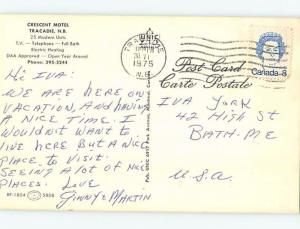 CRESCENT MOTEL
TRACADIE, N.B.
25 Modern Units
T.V. — Telephone — Full Bath
Electric Heating
DAA Approved — Open Year Round
Phone: 395-2244
TRACADIE
1975
N.B.
Canada 8
Post Card
Carte Postale
HI IVA:
WE ARE HERE ON
VACATION, AND HAVING
A NICE TIME. I
WOULDN'T WANT TO
LIVE HERE BUT A NICE
PLACE TO VISIT.
SEEING A LOT OF NICE
PLACES. LOVE
GINNY & MARTIN
IVA YORK
42 HIGH ST
BATH-ME
U.S.A